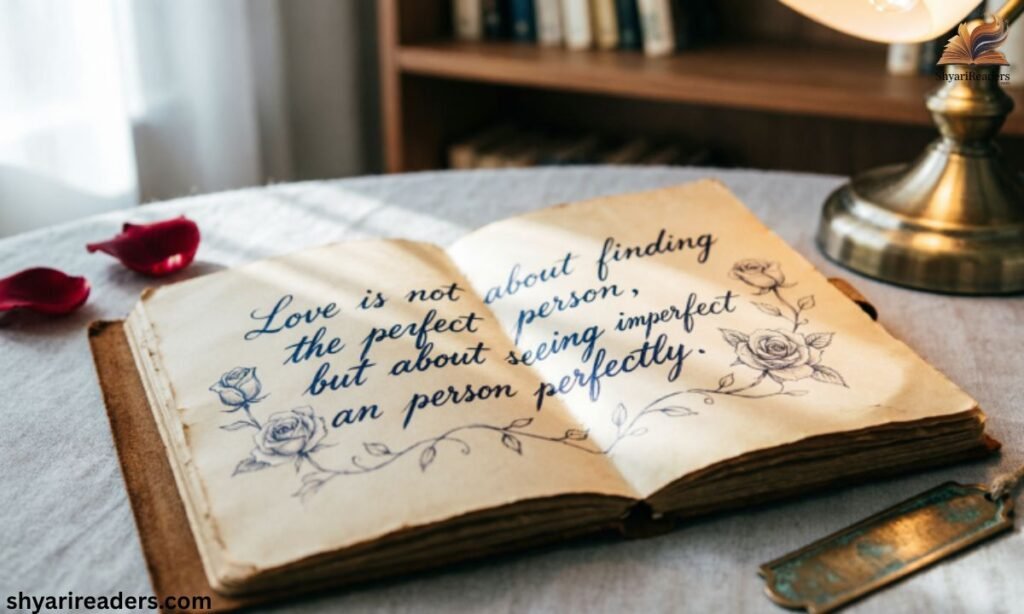 ShyariReaders
Love is not about finding
the perfect person,
but about seeing imperfect
an person perfectly.
shyarireaders.com